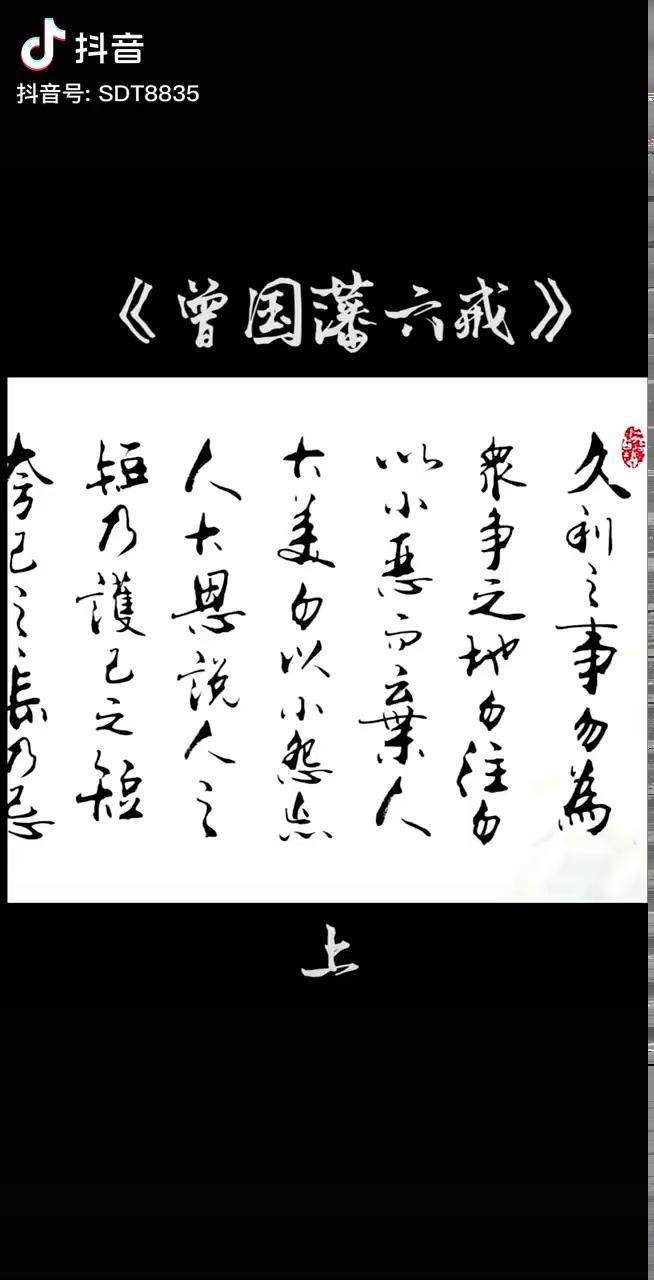 抖音
抖音号: SDT8835
《曾国藩六戒》
久利之事勿為
衆争之地勿往勿
以小惡而棄人
大美勿以小怨忘
人大恩説人之
短乃護己之短
夸己之長乃忌
上